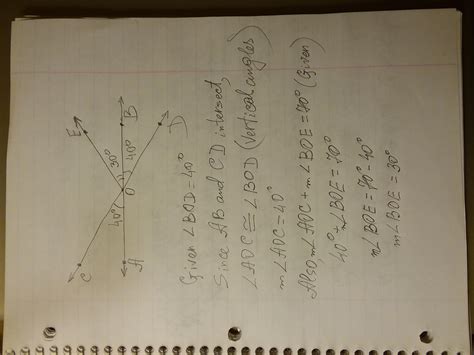 E
B
30°
40°
40°
O
D
C
A
Given ∠BOD = 40°
Since AB and CD intersect,
∠AOC ≅ ∠BOD (Vertical angles)
m∠AOC = 40°
Also, m∠AOC + m∠BOE = 70° (Given)
40° + ∠BOE = 70°
m∠BOE = 70° - 40°
m∠BOE = 30°